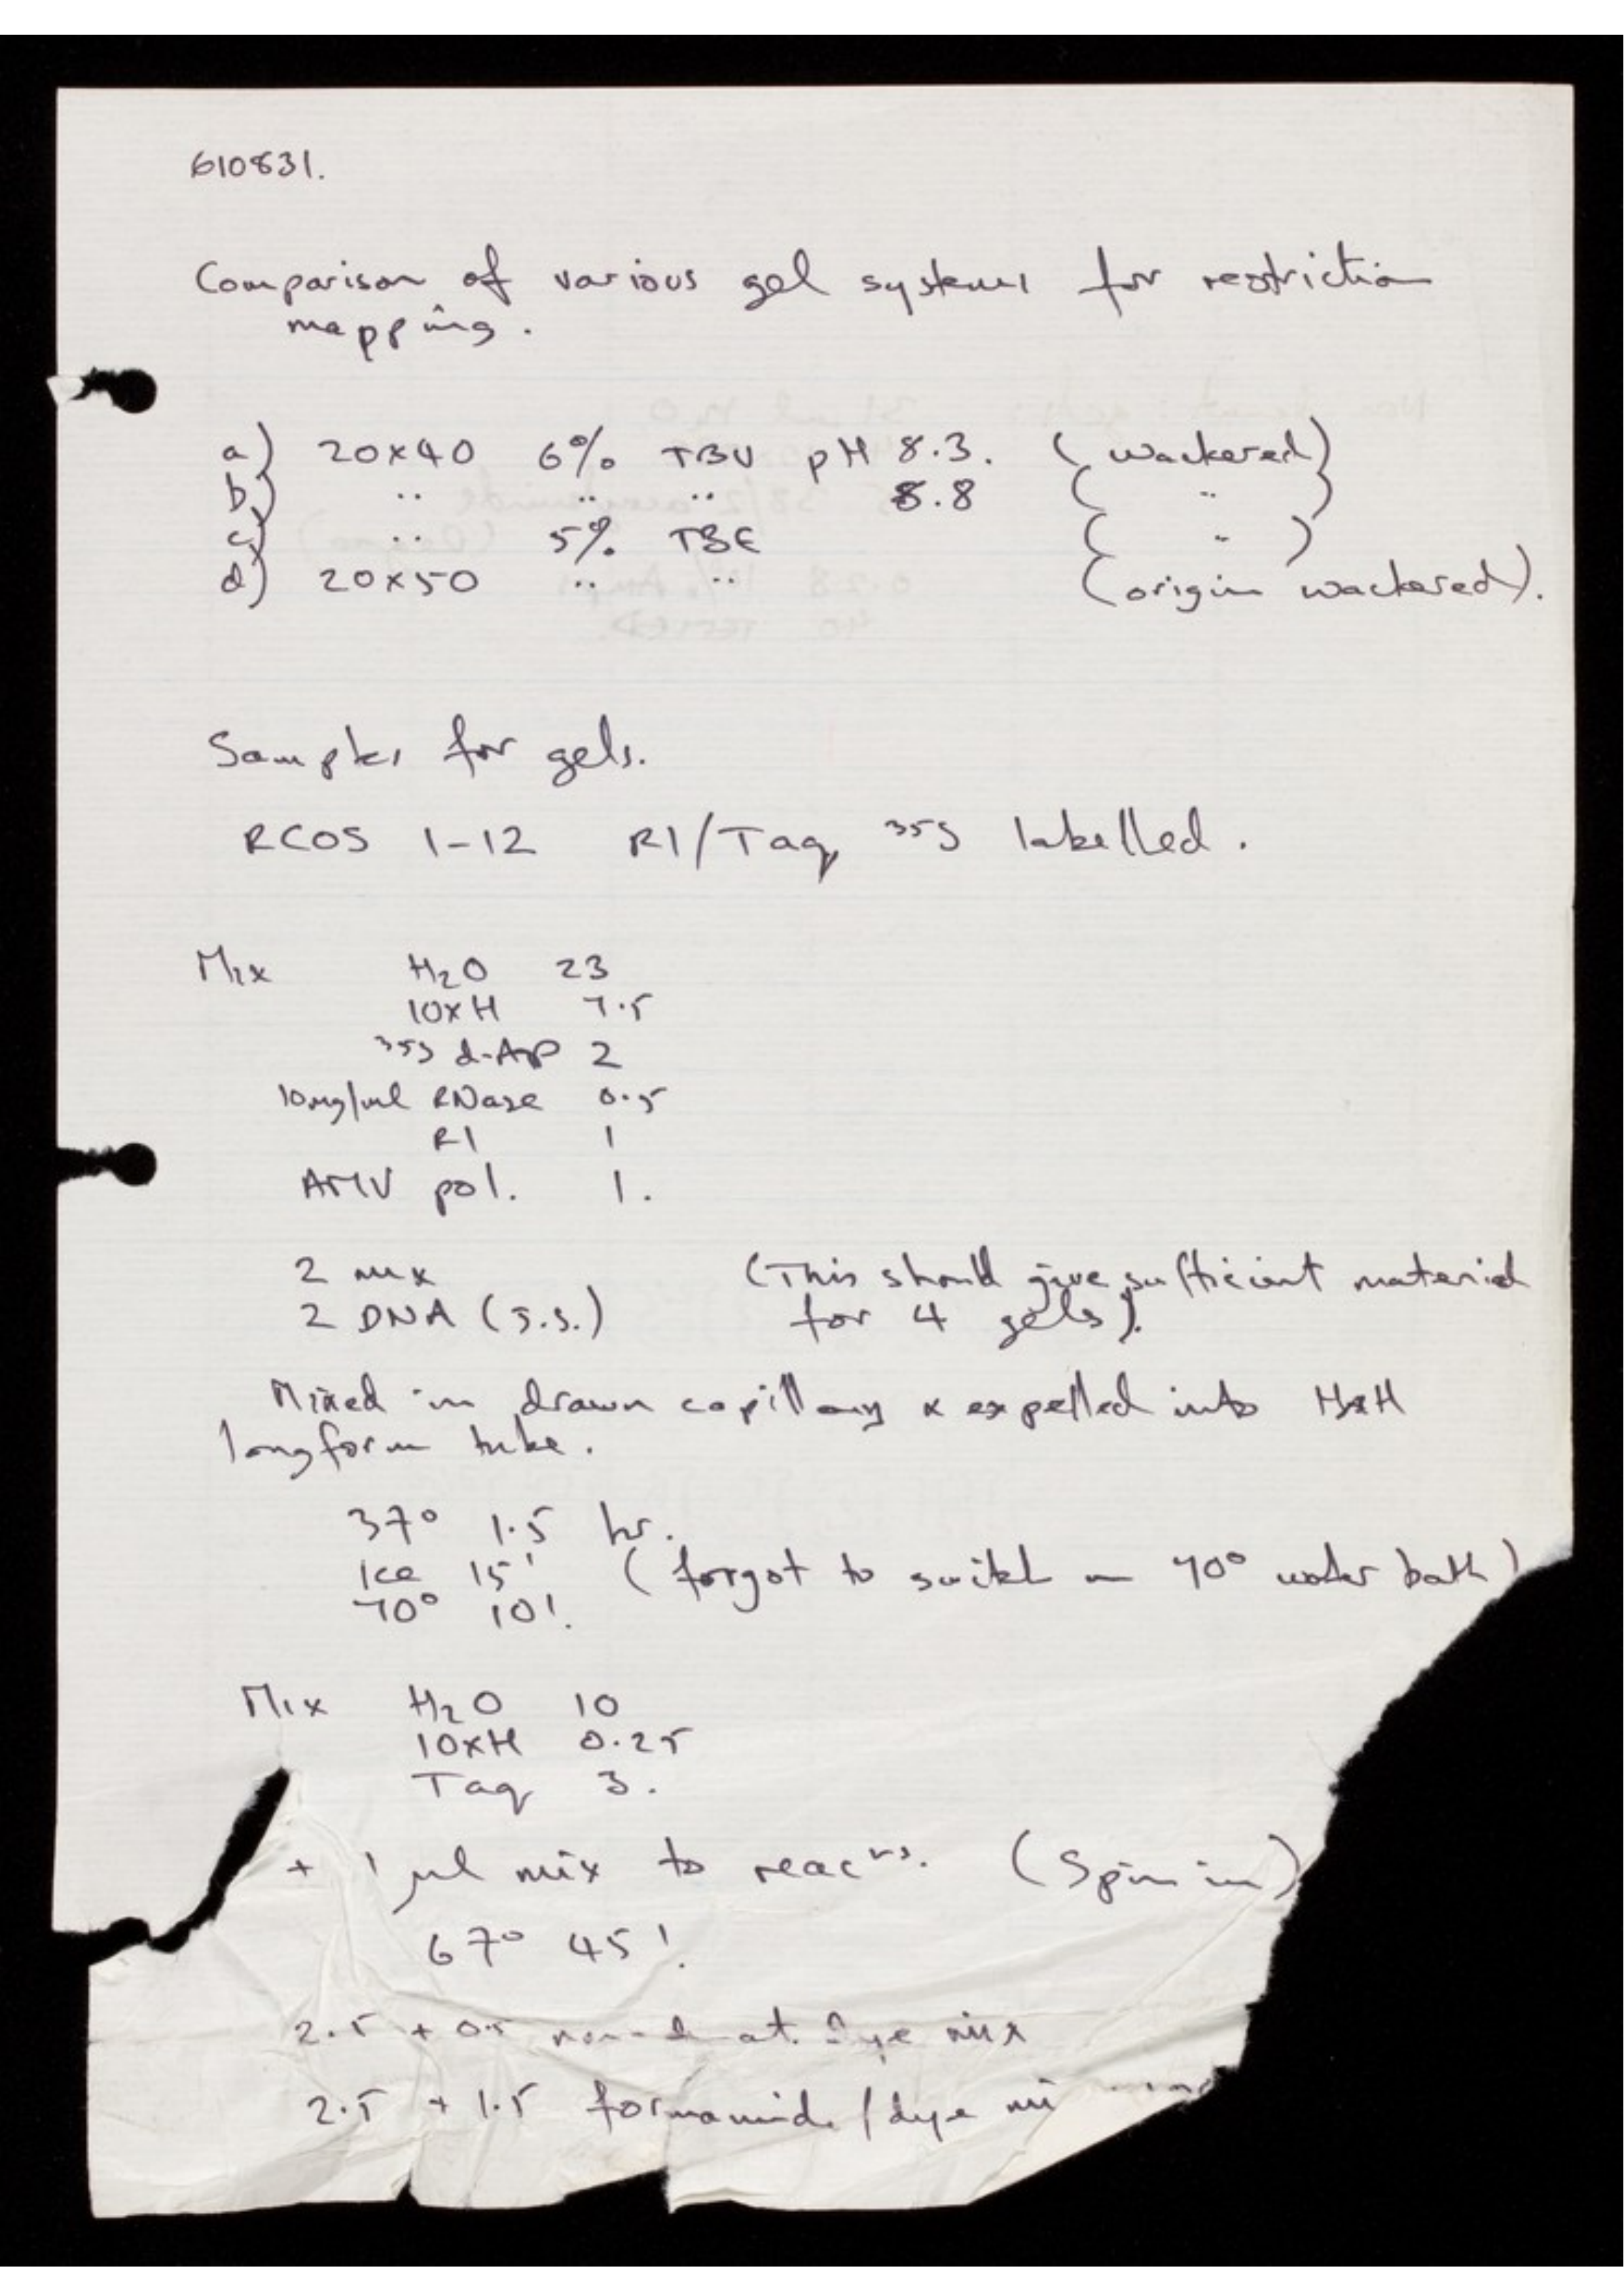 610831.
Comparison of various gel systems for restriction
mapping.
a) 20x40 6% TBU pH 8.3. (wackered)
b) .. .. .. 8.8 ( " )
c) .. 5% TBE ( " )
d) 20x50 .. .. (origin wackered).
Samples for gels.
RCOS 1-12 R1/Taq, 35S labelled.
Mix H2O 23
10xH 7.5
35S d-ATP 2
10mg/ml RNase 0.5
R1 1
AMV pol. 1.
2 mix (This should give sufficient material
2 DNA (s.s.) for 4 gels).
Mixed in drawn capillary & expelled into
longform tube.
37° 1.5 hr.
Ice 15' (forgot to switch on 70° water bath)
70° 10'.
Mix H2O 10
10xH 0.25
Taq 3.
+ 1 µl mix to reacns. (Spin in)
67° 45'.
2.5 + 0.5 dye mix
2.5 + 1.5 formamide/dye mi